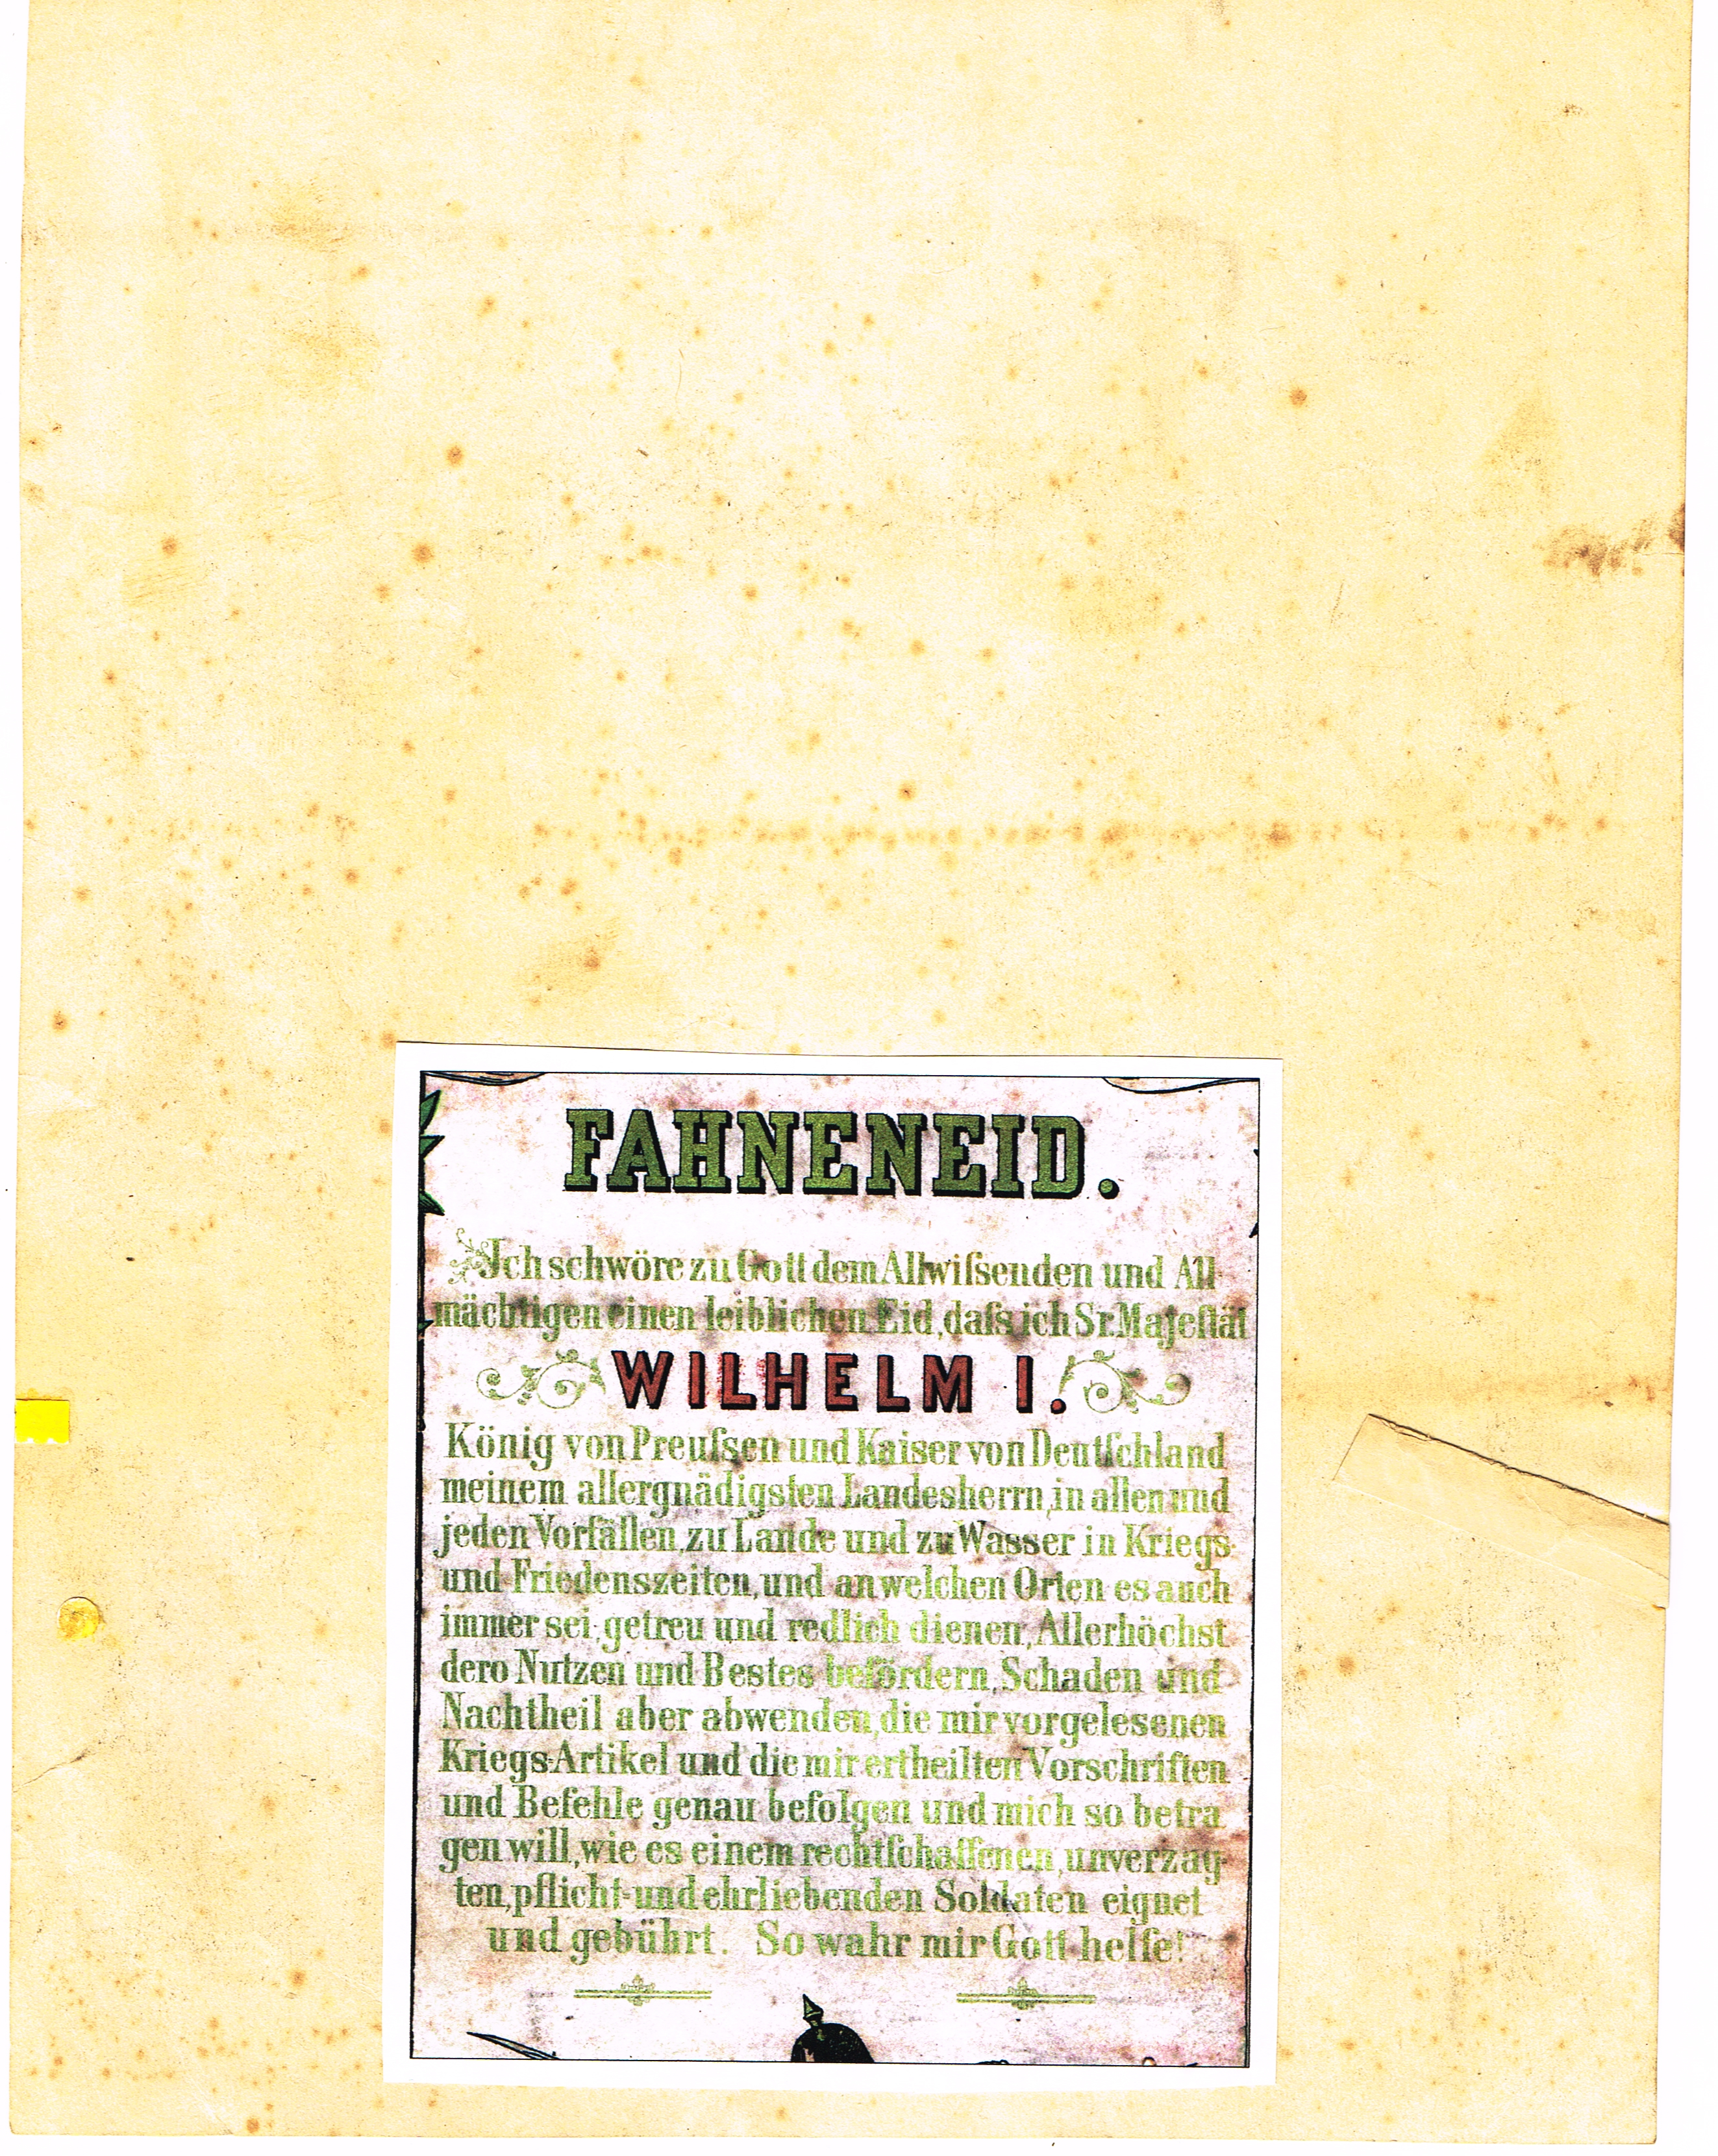 FAHNENEID.
Ich schwöre zu Gott dem Allwiſsenden und All-
mächtigen einen leiblichen Eid, daſs ich Sr. Majeſtät
WILHELM I.
König von Preuſsen und Kaiser von Deutſchland
meinem allergnädigsten Landesherrn, in allen und
jeden Vorfällen, zu Lande und zu Wasser in Kriegs-
und Friedenszeiten, und an welchen Orten es auch
immer sei, getreu und redlich dienen, Allerhöchst
dero Nutzen und Bestes befördern, Schaden und
Nachtheil aber abwenden, die mir vorgelesenen
Kriegs-Artikel und die mir ertheilten Vorschriften
und Befehle genau befolgen und mich so betra
gen will, wie es einem rechtſchaffenen, unverzag-
ten, pflicht- und ehrliebenden Soldaten eignet
und gebührt. So wahr mir Gott helfe!